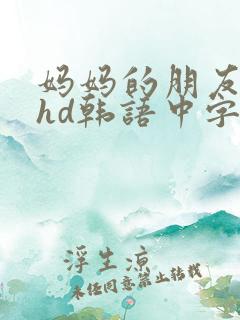 妈妈的朋友
hd韩语中字
浮生凉
未经同意禁止转载